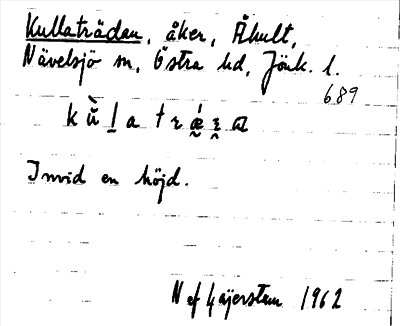 Kullaträdan, åker, Åhult,
Nävelsjö sn, Östra hd, Jönk. l.
689
Invid en höjd.
N af Geijerstam 1962